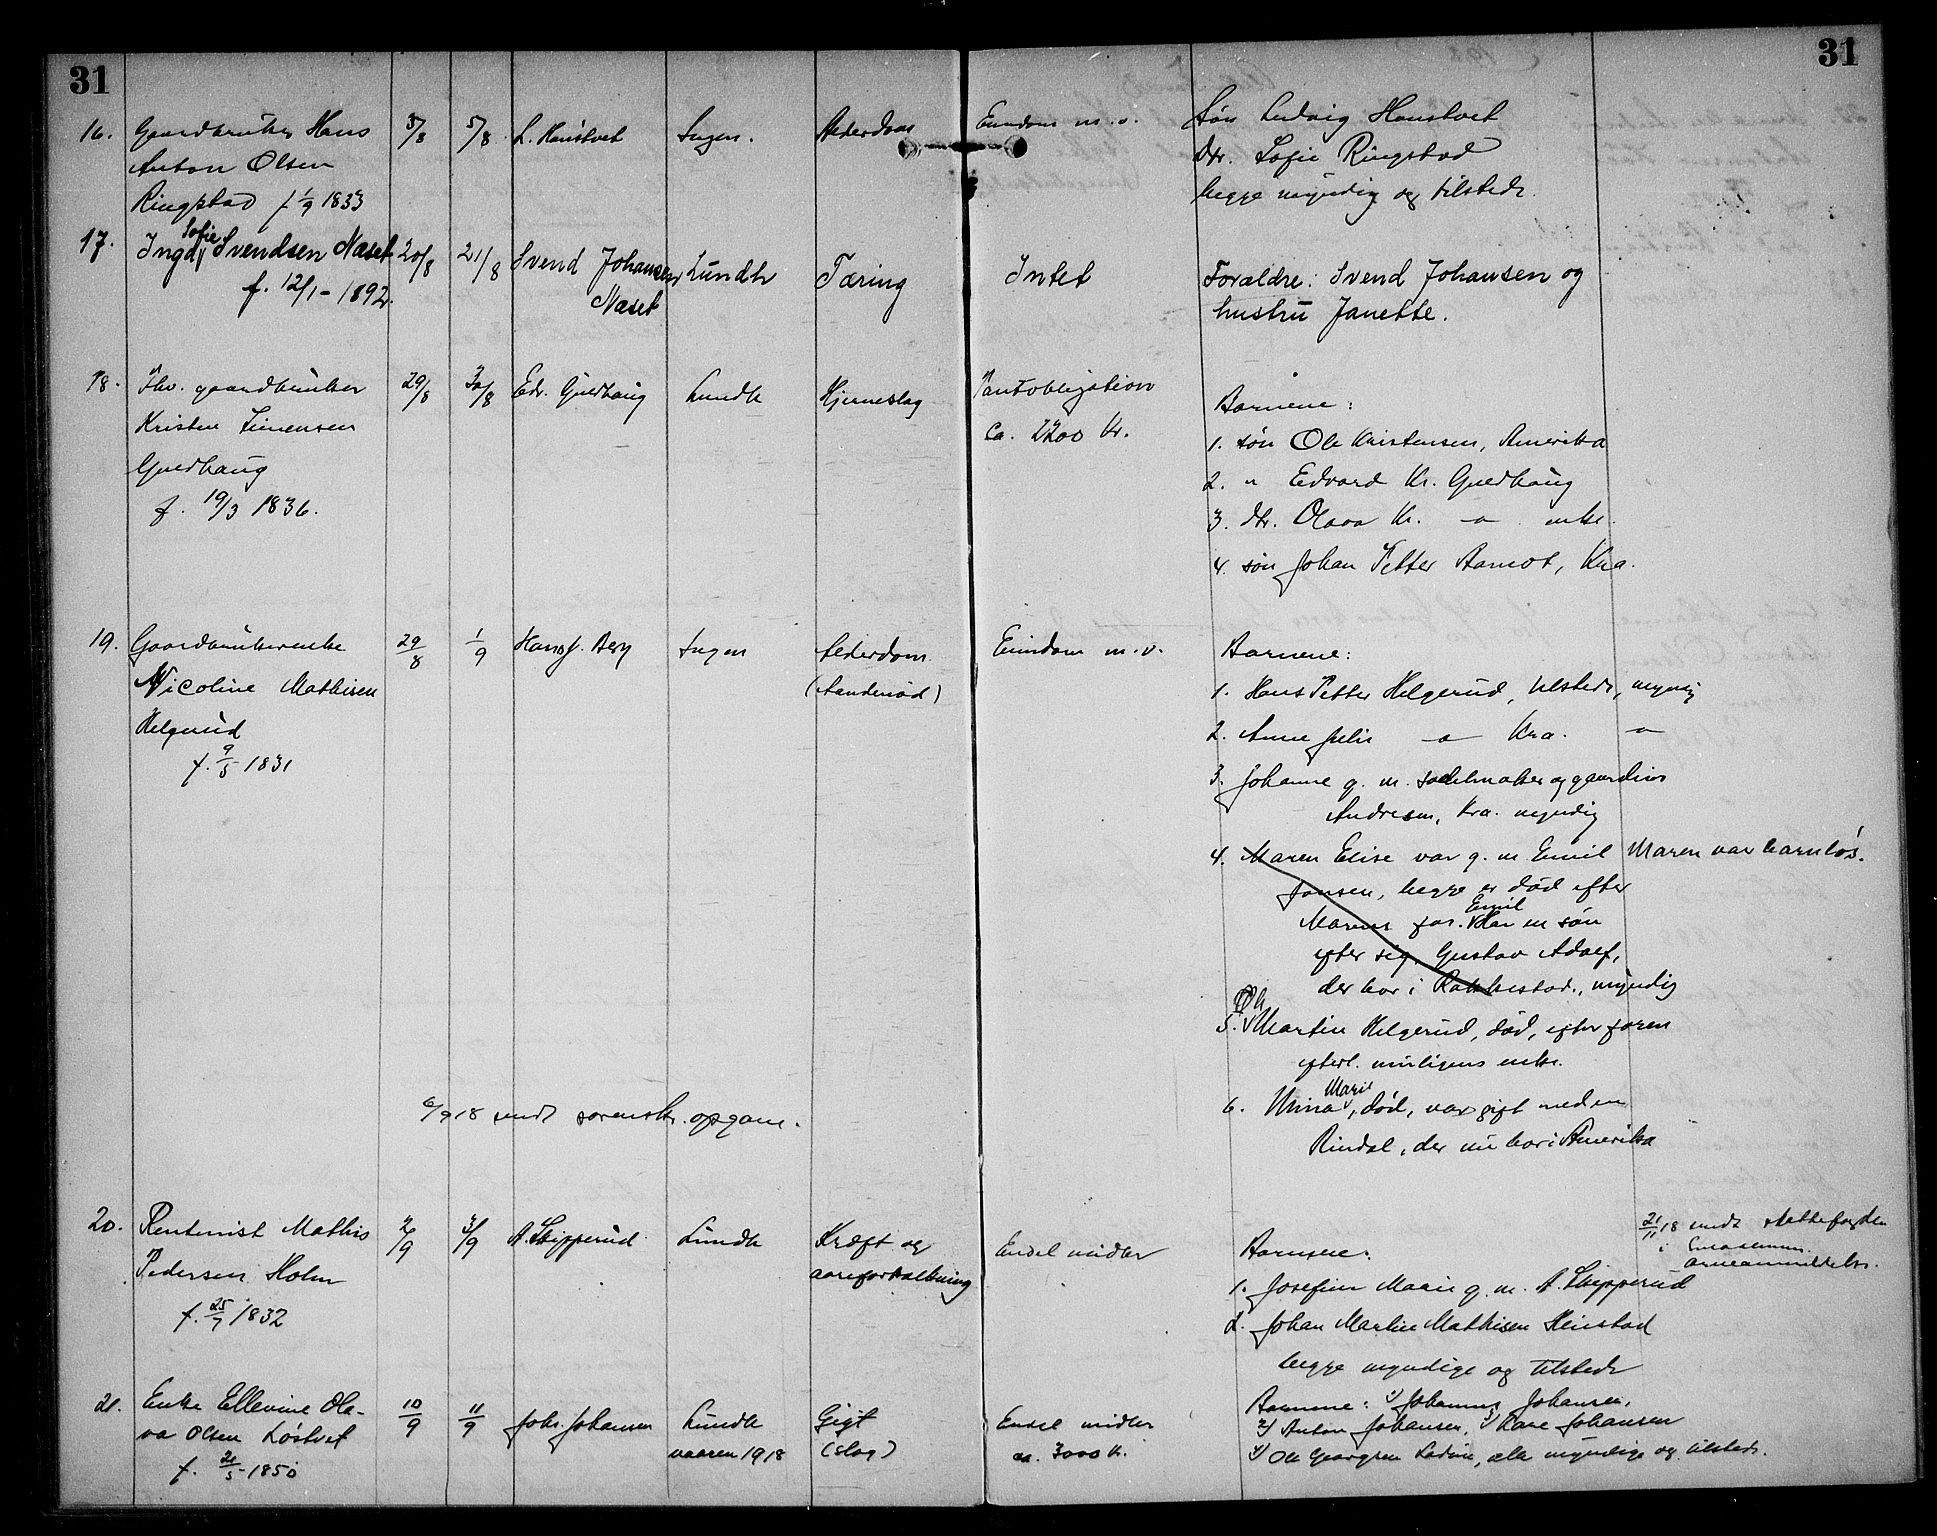 31
31
16. Gaardbruker Hans
Anton Olsen
Ringstad f 1/9 1833
3/8
5/8
L. Haustvet
Ingen.
Alderdom
Eiendom m. v.
Søn Ludvig Haustvet
Dtr. Sofie Ringstad
begge myndig og tilstede
17. Inga Sofie Svendsen Næset
f. 12/1 - 1892.
20/8
21/8
Svend Johansen
Næset
Lundh
Tæring
Intet
Forældre: Svend Johansen og
hustru Janette.
18. Fhv. gaardbruker
Kristen Simensen
Guedhaug
f. 19/3 1836.
29/8
30/8
Edv. Guedhaug
Lundh
Hjerneslag
Pantobligation
ca. 2200 Kr.
Barnene:
1. søn Ole Kristensen, Amerika
2. " Edvard Kr. Guedhaug
3. dtr. Olava Kr. — " — enke.
4. søn Johan Petter Aamot, Kra.
19. Gaardbrukerenke
Nicoline Mathisen
Helgerud
f. 9/5 1831
29/8
1/9
Hans J. Berg
Ingen
Alderdom
(Aandenød)
Eiendom m. v.
Barnene:
1. Hans Petter Helgerud, tilstede, myndig
2. Anne Julie — " — Kra. — " —
3. Johanne g. m. sadelmaker og gaardeier
Andresen, Kra. myndig
4. Maren Elise var g. m. Emil
Maren var barnløs.
Jansen, begge er død efter
Marens far. Emil har en søn
efter sig, Gustav Adolf,
der bor i Rakkestad, myndig
5. Ole Martin Helgerud, død, efter faren
efterl. muligens enke.
6. Mina Marie, død, var gift med en
Rindal, der nu bor i Amerika
6/9 18 sendt sorenskr. opgave.
20. Rentenist Mathis
Pedersen Holm
f. 25/7 1832
2/9
3/9
A. Skipperud
Lundh
Kræft og
aareforkalkning
Endel midler
Barnene:
21/11 18 sendt skiftefogden
i
1. Josefine Marie g. m. A. Skipperud
2. Johan Martin Mathisen Heistad
begge myndige og tilstede
21. Enke Ellevine Ola-
va Olsen Løstvet
f. 21/5 1850
10/9
11/9
Johs. Johansen
Lundh
vaaren 1918
Gigt
(slag)
Endel midler
ca. 3000 k.
Barnene: 1) Johannes Johansen,
2) Anton Johansen, 3) Kare Johansen
4) Ole Georgsen Ladim, alle myndige og tilstede.